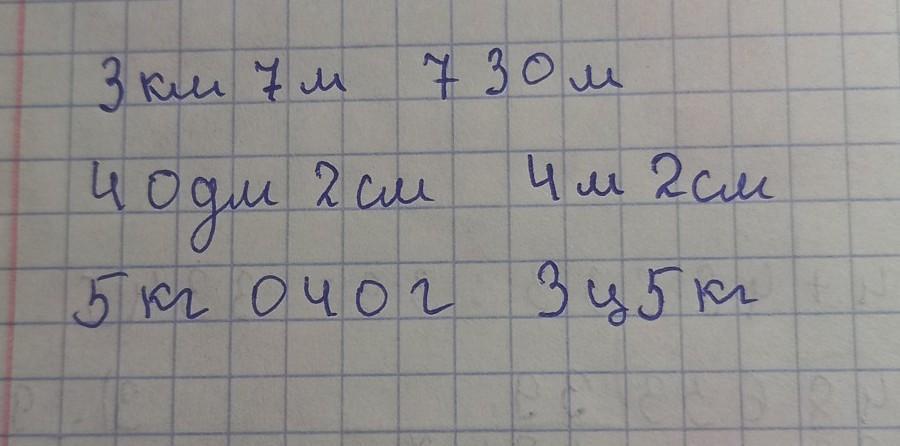 3 км 7 м 730 м
40 дм 2 см 4 м 2 см
5 кг 040 г 3 ц 5 кг